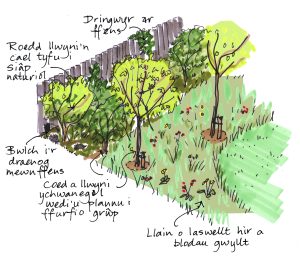 Dringwyr ar
ffens
Roedd llwyni'n
cael tyfu i
siâp
naturiol
Bwlch i'r
draenog
mewn ffens
Coed a llwyni
ychwanegol
wedi'u plannu i
ffurfio grŵp
Llain o laswellt hir a
blodau gwyllt